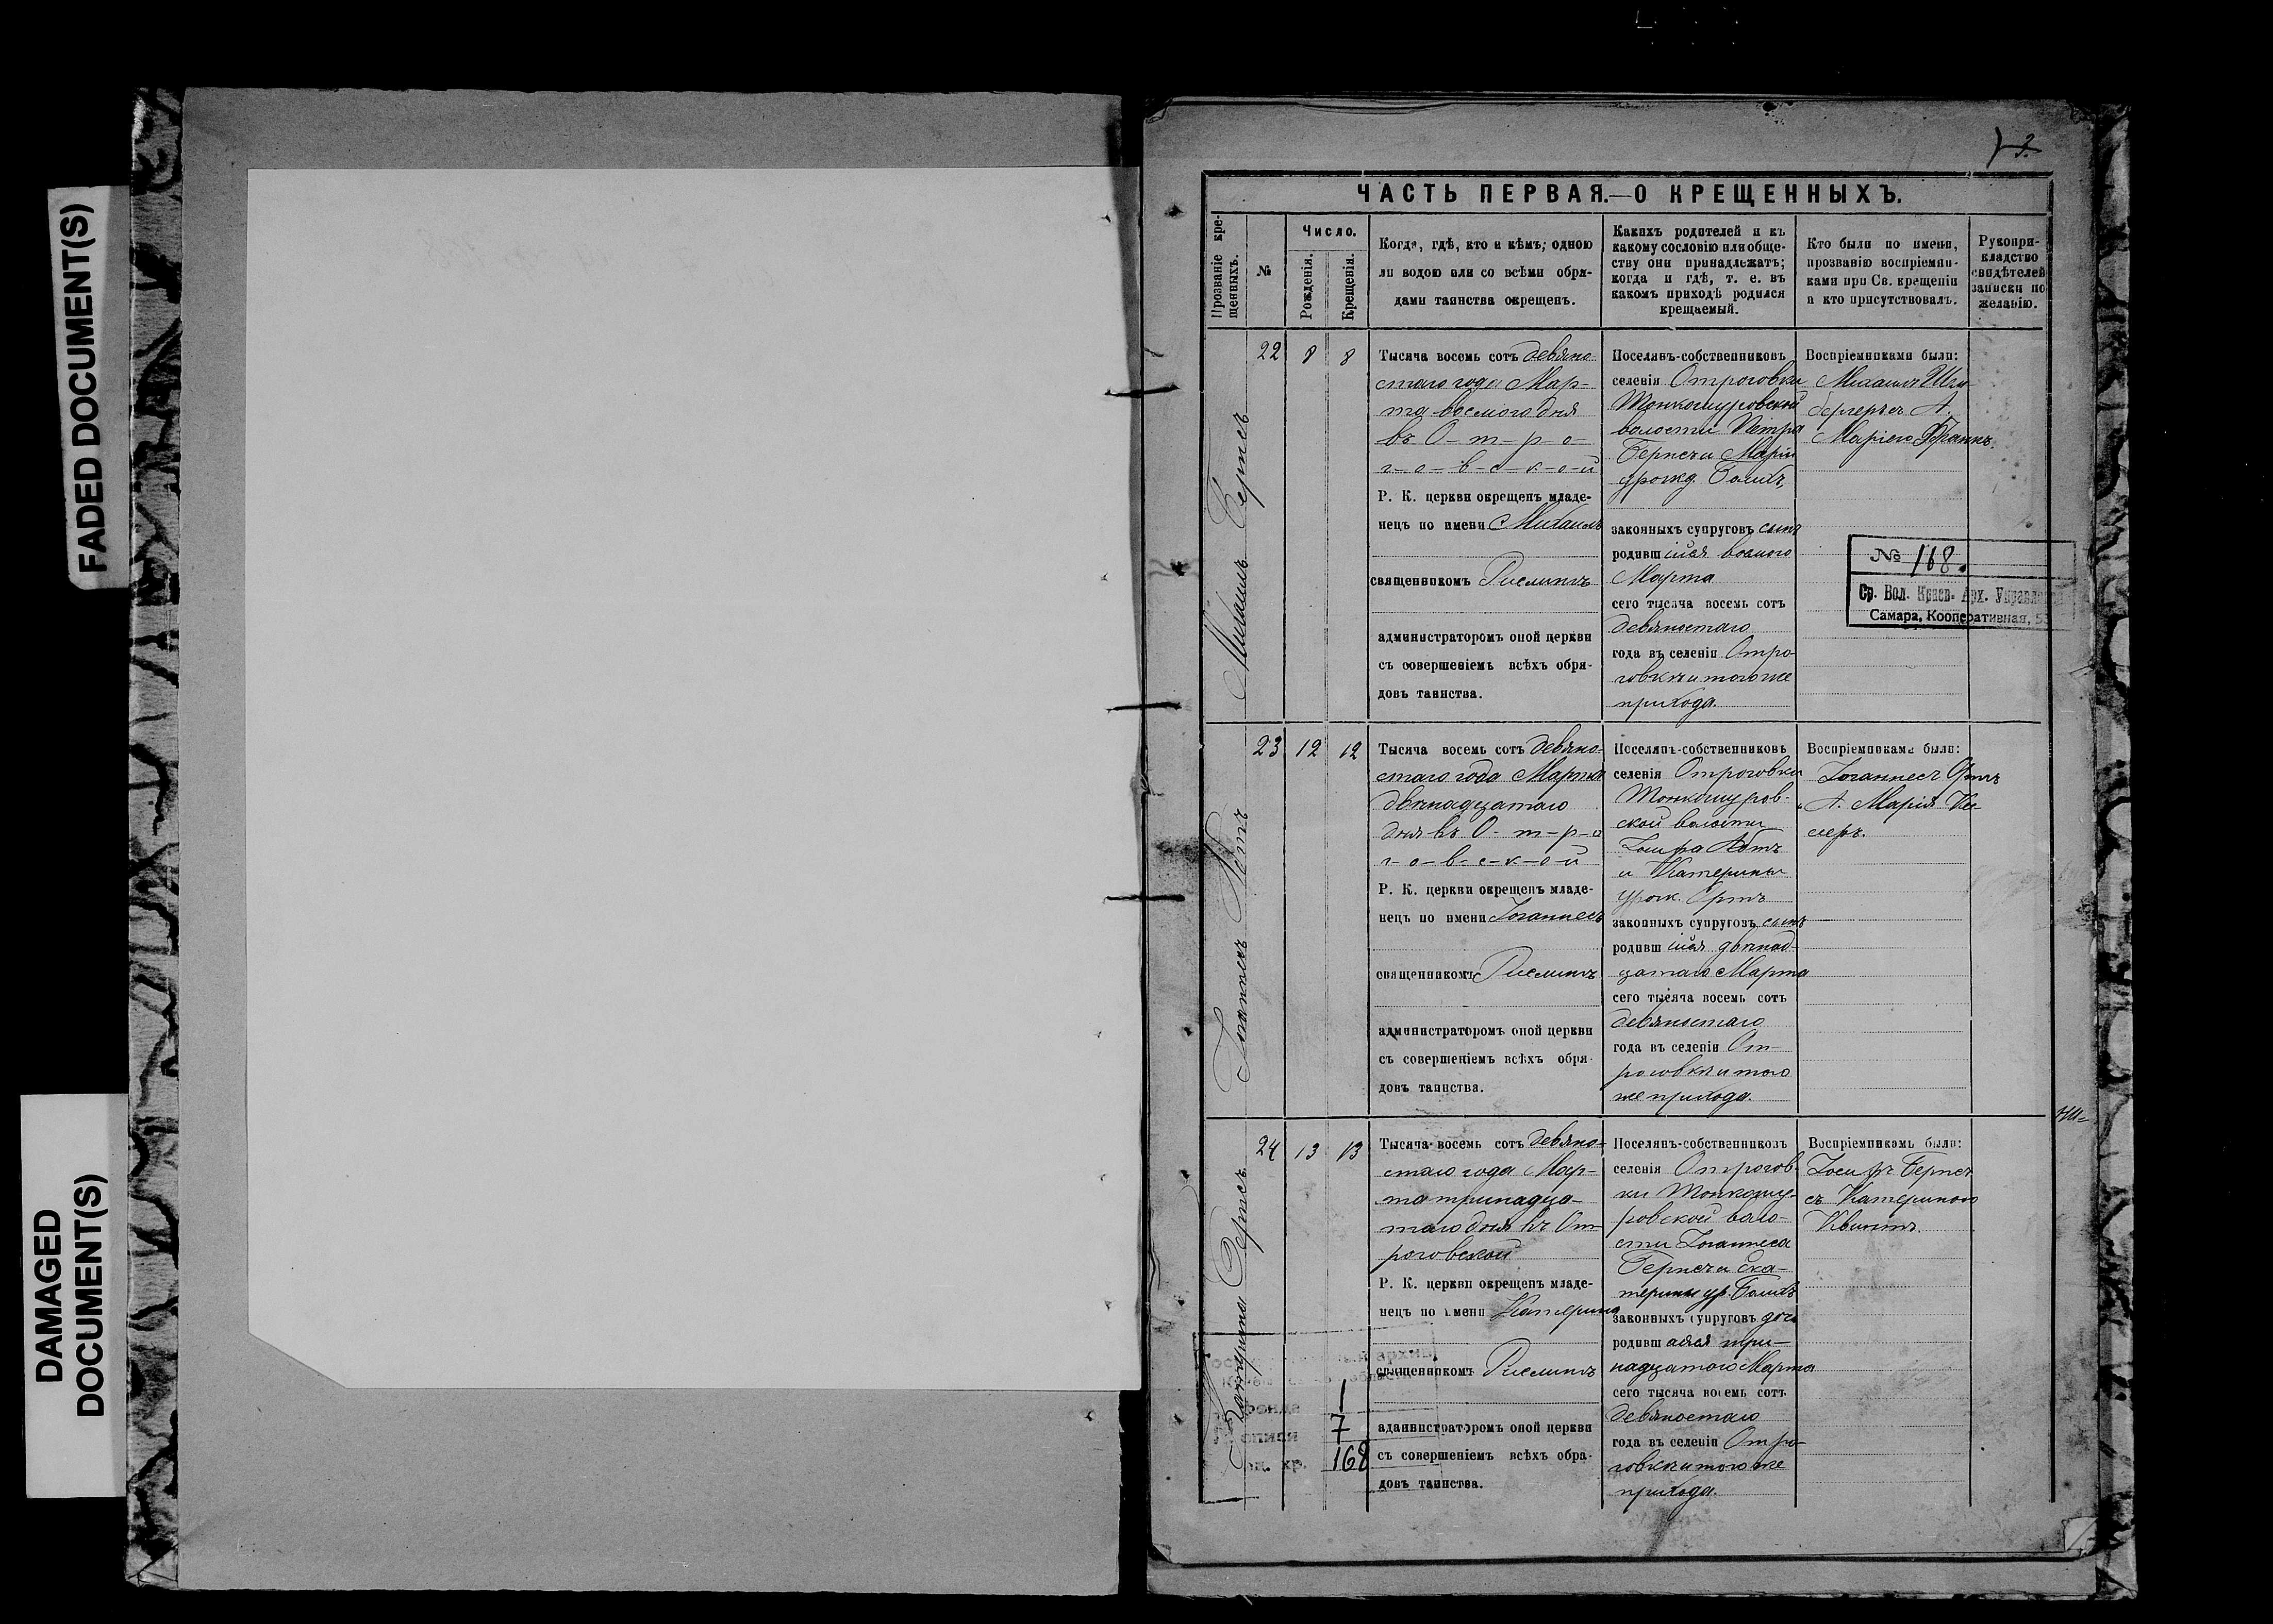 FADED DOCUMENT(S)
DAMAGED
DOCUMENT(S)
3.
ЧАСТЬ ПЕРВАЯ.—О КРЕЩЕННЫХЪ.
Прозваніе кре-
щенныхъ.
№
Число.
Рожденія.
Крещенія.
Когда, гдѣ, кто и кѣмъ; одною
ли водою или со всѣми обря-
дами таинства окрещенъ.
Какихъ родителей и къ
какому сословію или обще-
ству они принадлежатъ;
когда и гдѣ, т. е. въ
какомъ приходѣ родился
крещаемый.
Кто были по имени,
прозванію воспріемни-
ками при Св. крещеніи
и кто присутствовалъ.
Рукопри-
кладство
свидѣтелей
записки по
желанію.
Михаилъ Бернсъ
22 8 8
Тысяча восемь сотъ девяно-
стаго года Мар-
та восьмого дня
въ О-т-р-о-
г-о-в-с-к-о-й
Р. К. церкви окрещенъ младе-
нецъ по имени Михаилъ
священникомъ Рислингъ
администраторомъ оной церкви
съ совершеніемъ всѣхъ обря-
довъ таинства.
Поселянъ-собственниковъ
селенія Отроговки
Тонкошуровской
волости Петра
Бернсъ и Маріи
урожд.
законныхъ супруговъ сынъ
родившійся восьмого
Марта
сего тысяча восемь сотъ
девяностаго
года въ селеніи Отро-
говкѣ и того же
прихода.
Воспріемниками были:
Михаилъ
А.
Маріею Франкъ.
№ 168.
Ср. Вол. Краев. Арх. Управле
Самара, Кооперативная, 5
Іоаннесъ Абтъ
23 12 12
Тысяча восемь сотъ девяно-
стаго года Марта
двѣнадцатаго
дня въ О-т-р-о
г-о-в-с-к-о-й
Р. К. церкви окрещенъ младе-
нецъ по имени Іоаннесъ
священникомъ Рислингъ
администраторомъ оной церкви
съ совершеніемъ всѣхъ обря-
довъ таинства.
Поселянъ-собственниковъ
селенія Отроговки
Тонкошуров-
ской волости
Іосифа Абтъ
и Катерины
урож. Ортъ
законныхъ супруговъ сынъ
родившійся двѣнад-
цатаго Марта
сего тысяча восемь сотъ
девяностаго
года въ селеніи От-
роговкѣ и того
же прихода.
Воспріемниками были:
Іоаннесъ Ортъ
А. Марія Кес-
слеръ.
Катерина Бернсъ
24 13 13
Тысяча восемь сотъ девяно-
стаго года Мар-
та тринадца-
таго дня въ От-
роговской
Р. К. церкви окрещенъ младе-
нецъ по имени Катерина
священникомъ Рислингъ
администраторомъ оной церкви
съ совершеніемъ всѣхъ обря-
довъ таинства.
Поселянъ-собственниковъ
селенія Отрогов-
ки Тонкошу-
ровской воло-
сти Іоаннеса
Бернсъ и Ека-
терины ур.
законныхъ супруговъ дочь
родившаяся три-
надцатого Марта
сего тысяча восемь сотъ
девяностаго
года въ селеніи Отро-
говкѣ и того же
прихода.
Воспріемникамъ были:
Іосифъ Бернсъ
съ Катериною
Квинтъ.
архив
фонда 1
описи 7
ед. хр. 168